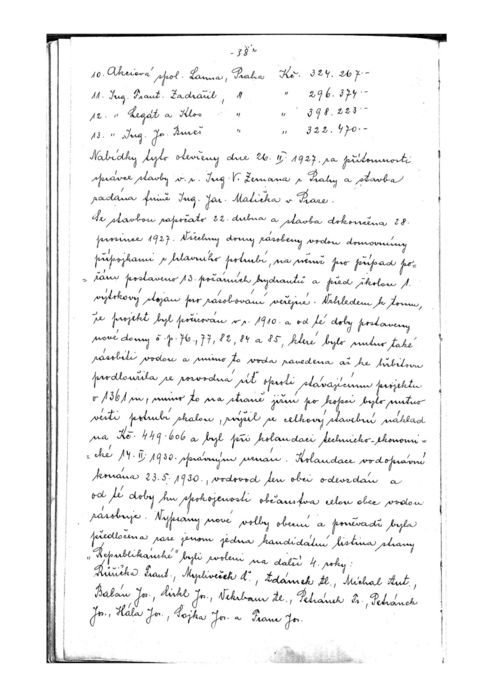 - 38 -
10. Akciová spol. Lanna, Praha Kč. 324.267.-
11. Ing. Frant. Zadražil, " " 296.374.-
12. " Legát a Klos " " 398.223.-
13. " Ing. Jo. " " 322.470.-
Nabídky tyto otevřeny dne 26. II. 1927, za přítomnosti
správce stavby v. r. Ing. V. Zemana z Prahy a stavba
zadána firmě Ing. Jar. Matička v Praze.
Se stavbou započato 22. dubna a stavba dokončena 28.
prosince 1927. Všechny domy zásobeny vodou domovními
přípojkami z hlavního potrubí, na němž pro případ po-
žáru postaveno 13. požárních hydrantů a před školou 1.
výtokový stojan pro zásobování veřejné. Vzhledem k tomu,
že projekt byl pořizován v r. 1910. a od té doby postaveny
nové domy č. p. 76, 77, 82, 84 a 85, které bylo nutno také
zásobiti vodou a mimo to voda zavedena až ke hřbitovu
prodloužila se rozvodná síť oproti stávajícímu projektu
o 1361 m, mimo to na straně jižní po kopci bylo nutno
vésti potrubí skalou, zvýšil se celkový stavební náklad
na Kč. 449.606 a byl při kolaudaci technicko-ekonomi-
cké 14. II. 1930. správným uznán. Kolaudace vodoprávní
konána 23.5.1930., vodovod ten obci odevzdán a
od té doby ku spokojenosti občanstva celou obec vodou
zásobuje. Vypsány nové volby obecní a poněvadž byla
předložena zase jenom jedna kandidátní listina strany
"Republikánské" byli zvoleni na další 4. roky:
Růžička Frant., Mysliveček A., Zdámek Al., Michal Ant.,
Balán Jos., Jos., Al., Petránek Fr., Petránek
Jos., Hála Jos., Sojka Jos. a Jos.